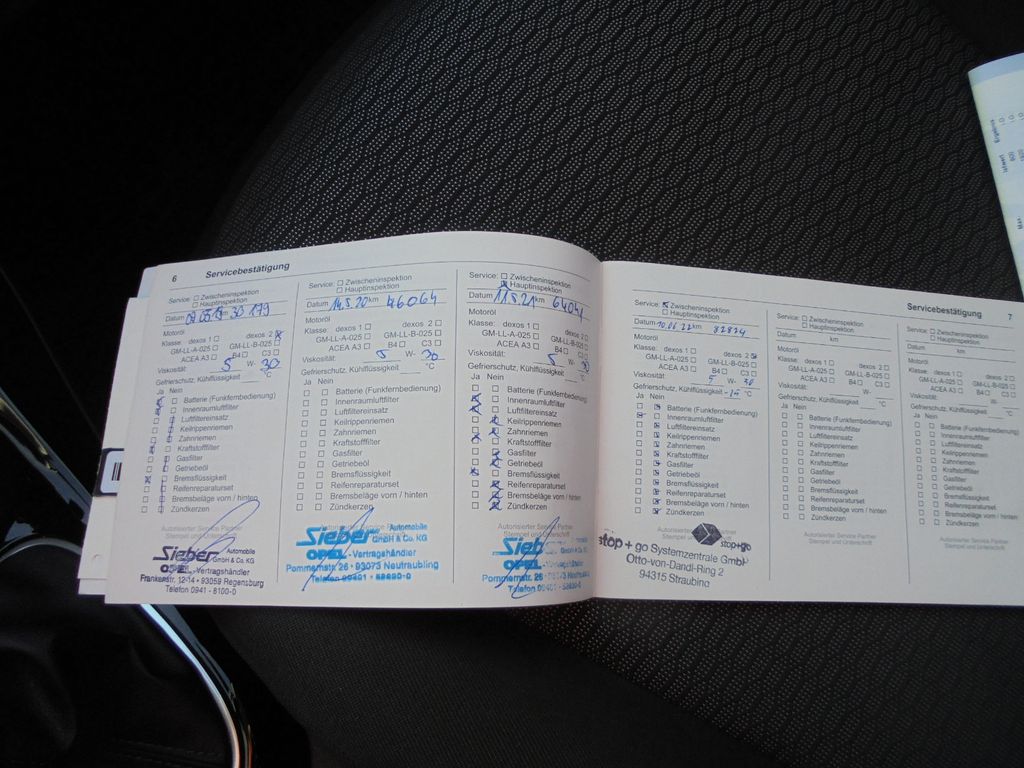 6 Servicebestätigung
Service: Zwischeninspektion
Hauptinspektion
Datum km 30 179
Motoröl
Klasse: dexos 1 dexos 2
GM-LL-A-025 GM-LL-B-025
ACEA A3 B4 C3
Viskosität: 5 W- 30
Gefrierschutz, Kühlflüssigkeit °C
Ja Nein
Batterie (Funkfernbedienung)
Innenraumluftfilter
Luftfiltereinsatz
Keilrippenriemen
Zahnriemen
Kraftstofffilter
Gasfilter
Getriebeöl
Bremsflüssigkeit
Reifenreparaturset
Bremsbeläge vorn / hinten
Zündkerzen
Autorisierter Service Partner
Sieber Automobile
GmbH & Co. KG
OPEL -Vertragshändler
Frankenstr. 12-14 • 93059 Regensburg
Telefon 0941 - 8100-0
Service: Zwischeninspektion
Hauptinspektion
Datum 14.5.20 km 46064
Motoröl
Klasse: dexos 1 dexos 2
GM-LL-A-025 GM-LL-B-025
ACEA A3 B4 C3
Viskosität: 5 W- 30
Gefrierschutz, Kühlflüssigkeit °C
Ja Nein
Batterie (Funkfernbedienung)
Innenraumluftfilter
Luftfiltereinsatz
Keilrippenriemen
Zahnriemen
Kraftstofffilter
Gasfilter
Getriebeöl
Bremsflüssigkeit
Reifenreparaturset
Bremsbeläge vorn / hinten
Zündkerzen
Sieber Automobile
GmbH & Co. KG
OPEL -Vertragshändler
Pommernstr. 26 • 93073 Neutraubling
Service: Zwischeninspektion
Hauptinspektion
Datum 11.5.21 km 64041
Motoröl
Klasse: dexos 1 dexos 2
GM-LL-A-025 GM-LL-B-025
ACEA A3 B4 C3
Viskosität: 5 W- 30
Gefrierschutz, Kühlflüssigkeit °C
Ja Nein
Batterie (Funkfernbedienung)
Innenraumluftfilter
Luftfiltereinsatz
Keilrippenriemen
Zahnriemen
Kraftstofffilter
Gasfilter
Getriebeöl
Bremsflüssigkeit
Reifenreparaturset
Bremsbeläge vorn / hinten
Zündkerzen
Autorisierter Service Partner
Sieb
OPEL
Pommernstr. 26
Servicebestätigung 7
Service: Zwischeninspektion
Hauptinspektion
Datum 10.06.22 km 82874
Motoröl
Klasse: dexos 1 dexos 2
GM-LL-A-025 GM-LL-B-025
ACEA A3 B4 C3
Viskosität: 5 W- 30
Gefrierschutz, Kühlflüssigkeit °C
Ja Nein
Batterie (Funkfernbedienung)
Innenraumluftfilter
Luftfiltereinsatz
Keilrippenriemen
Zahnriemen
Kraftstofffilter
Gasfilter
Getriebeöl
Bremsflüssigkeit
Reifenreparaturset
Bremsbeläge vorn / hinten
Zündkerzen
stop+go
stop + go Systemzentrale GmbH
Otto-von-Dandl-Ring 2
94315 Straubing
Service: Zwischeninspektion
Hauptinspektion
Datum km
Motoröl
Klasse: dexos 1 dexos 2
GM-LL-A-025 GM-LL-B-025
ACEA A3 B4 C3
Viskosität: W-
Gefrierschutz, Kühlflüssigkeit °C
Ja Nein
Batterie (Funkfernbedienung)
Innenraumluftfilter
Luftfiltereinsatz
Keilrippenriemen
Zahnriemen
Kraftstofffilter
Gasfilter
Getriebeöl
Bremsflüssigkeit
Reifenreparaturset
Bremsbeläge vorn / hinten
Zündkerzen
Autorisierter Service Partner
Stempel und Unterschrift
Service: Zwischeninspektion
Hauptinspektion
Datum km
Motoröl
Klasse: dexos 1 dexos 2
GM-LL-A-025 GM-LL-B-025
ACEA A3 B4 C3
Viskosität: W-
Gefrierschutz, Kühlflüssigkeit °C
Ja Nein
Batterie (Funkfernbedienung)
Innenraumluftfilter
Luftfiltereinsatz
Keilrippenriemen
Zahnriemen
Kraftstofffilter
Gasfilter
Getriebeöl
Bremsflüssigkeit
Reifenreparaturset
Bremsbeläge vorn / hinten
Zündkerzen
Autorisierter Service Partner
Stempel und Unterschrift